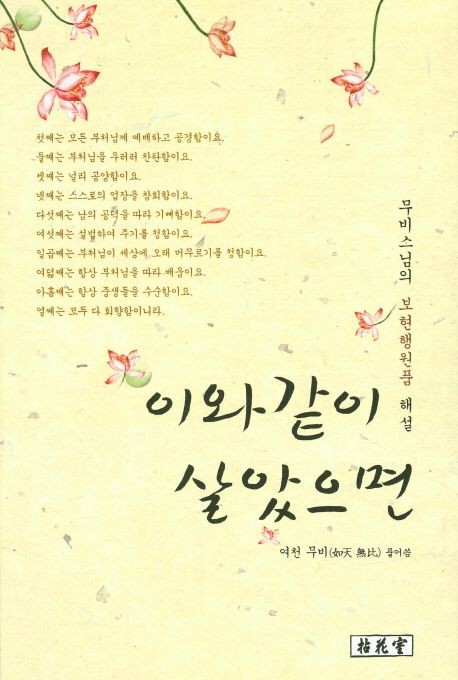 첫째는 모든 부처님께 예배하고 공경함이요.
둘째는 부처님을 우러러 찬탄함이요.
셋째는 널리 공양함이요.
넷째는 스스로의 업장을 참회함이요.
다섯째는 남의 공덕을 따라 기뻐함이요.
여섯째는 설법하여 주기를 청함이요.
일곱째는 부처님이 세상에 오래 머무르기를 청함이요.
여덟째는 항상 부처님을 따라 배움이요.
아홉째는 항상 중생들을 수순함이요.
열째는 모두 다 회향함이니라.
무비스님의 보현행원품 해설
이와같이
살았으면
여천 무비(如天 無比) 풀어씀
拈花室